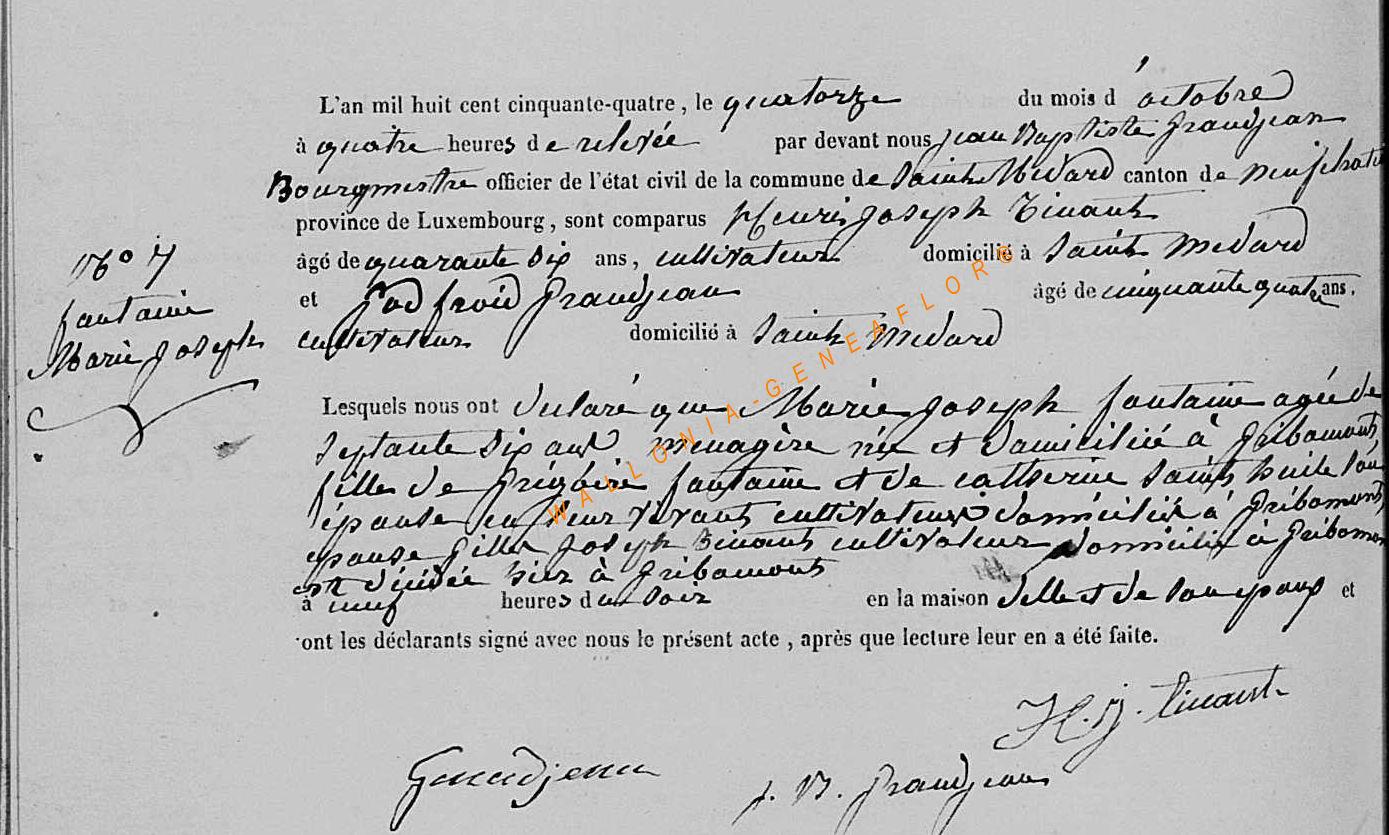 L'an mil huit cent cinquante-quatre, le quatorze du mois d'octobre
à quatre heures de relevée par devant nous jean Baptiste grandjean
Bourgmestre officier de l'état civil de la commune de Saint Médard canton de neufchateau
province de Luxembourg, sont comparus Henri joseph Tinant
âgé de quarante six ans, cultivateur domicilié à Saint Médard
et god froid grandjean âgé de cinquante quatre ans.
cultivateur domicilié à Saint Médard
N° 7
fontaine
Marie joseph
Lesquels nous ont déclaré que Marie joseph fontaine agée de
septante six ans ménagère née et domiciliée à gribomont
fille de grégoire fontaine et de catherine Saint huile son
épouse en leur vivant cultivateurs domiciliés à gribomont
épouse gille joseph Tinant cultivateur domicilié à gribomont
est décédée hier à gribomont
à neuf heures du soir en la maison d'elle et de son epoux et
ont les déclarants signé avec nous le présent acte, après que lecture leur en a été faite.
H. j. tinant
Grandjean
j. B. grandjean
WALLONIA-GENEAFLORE